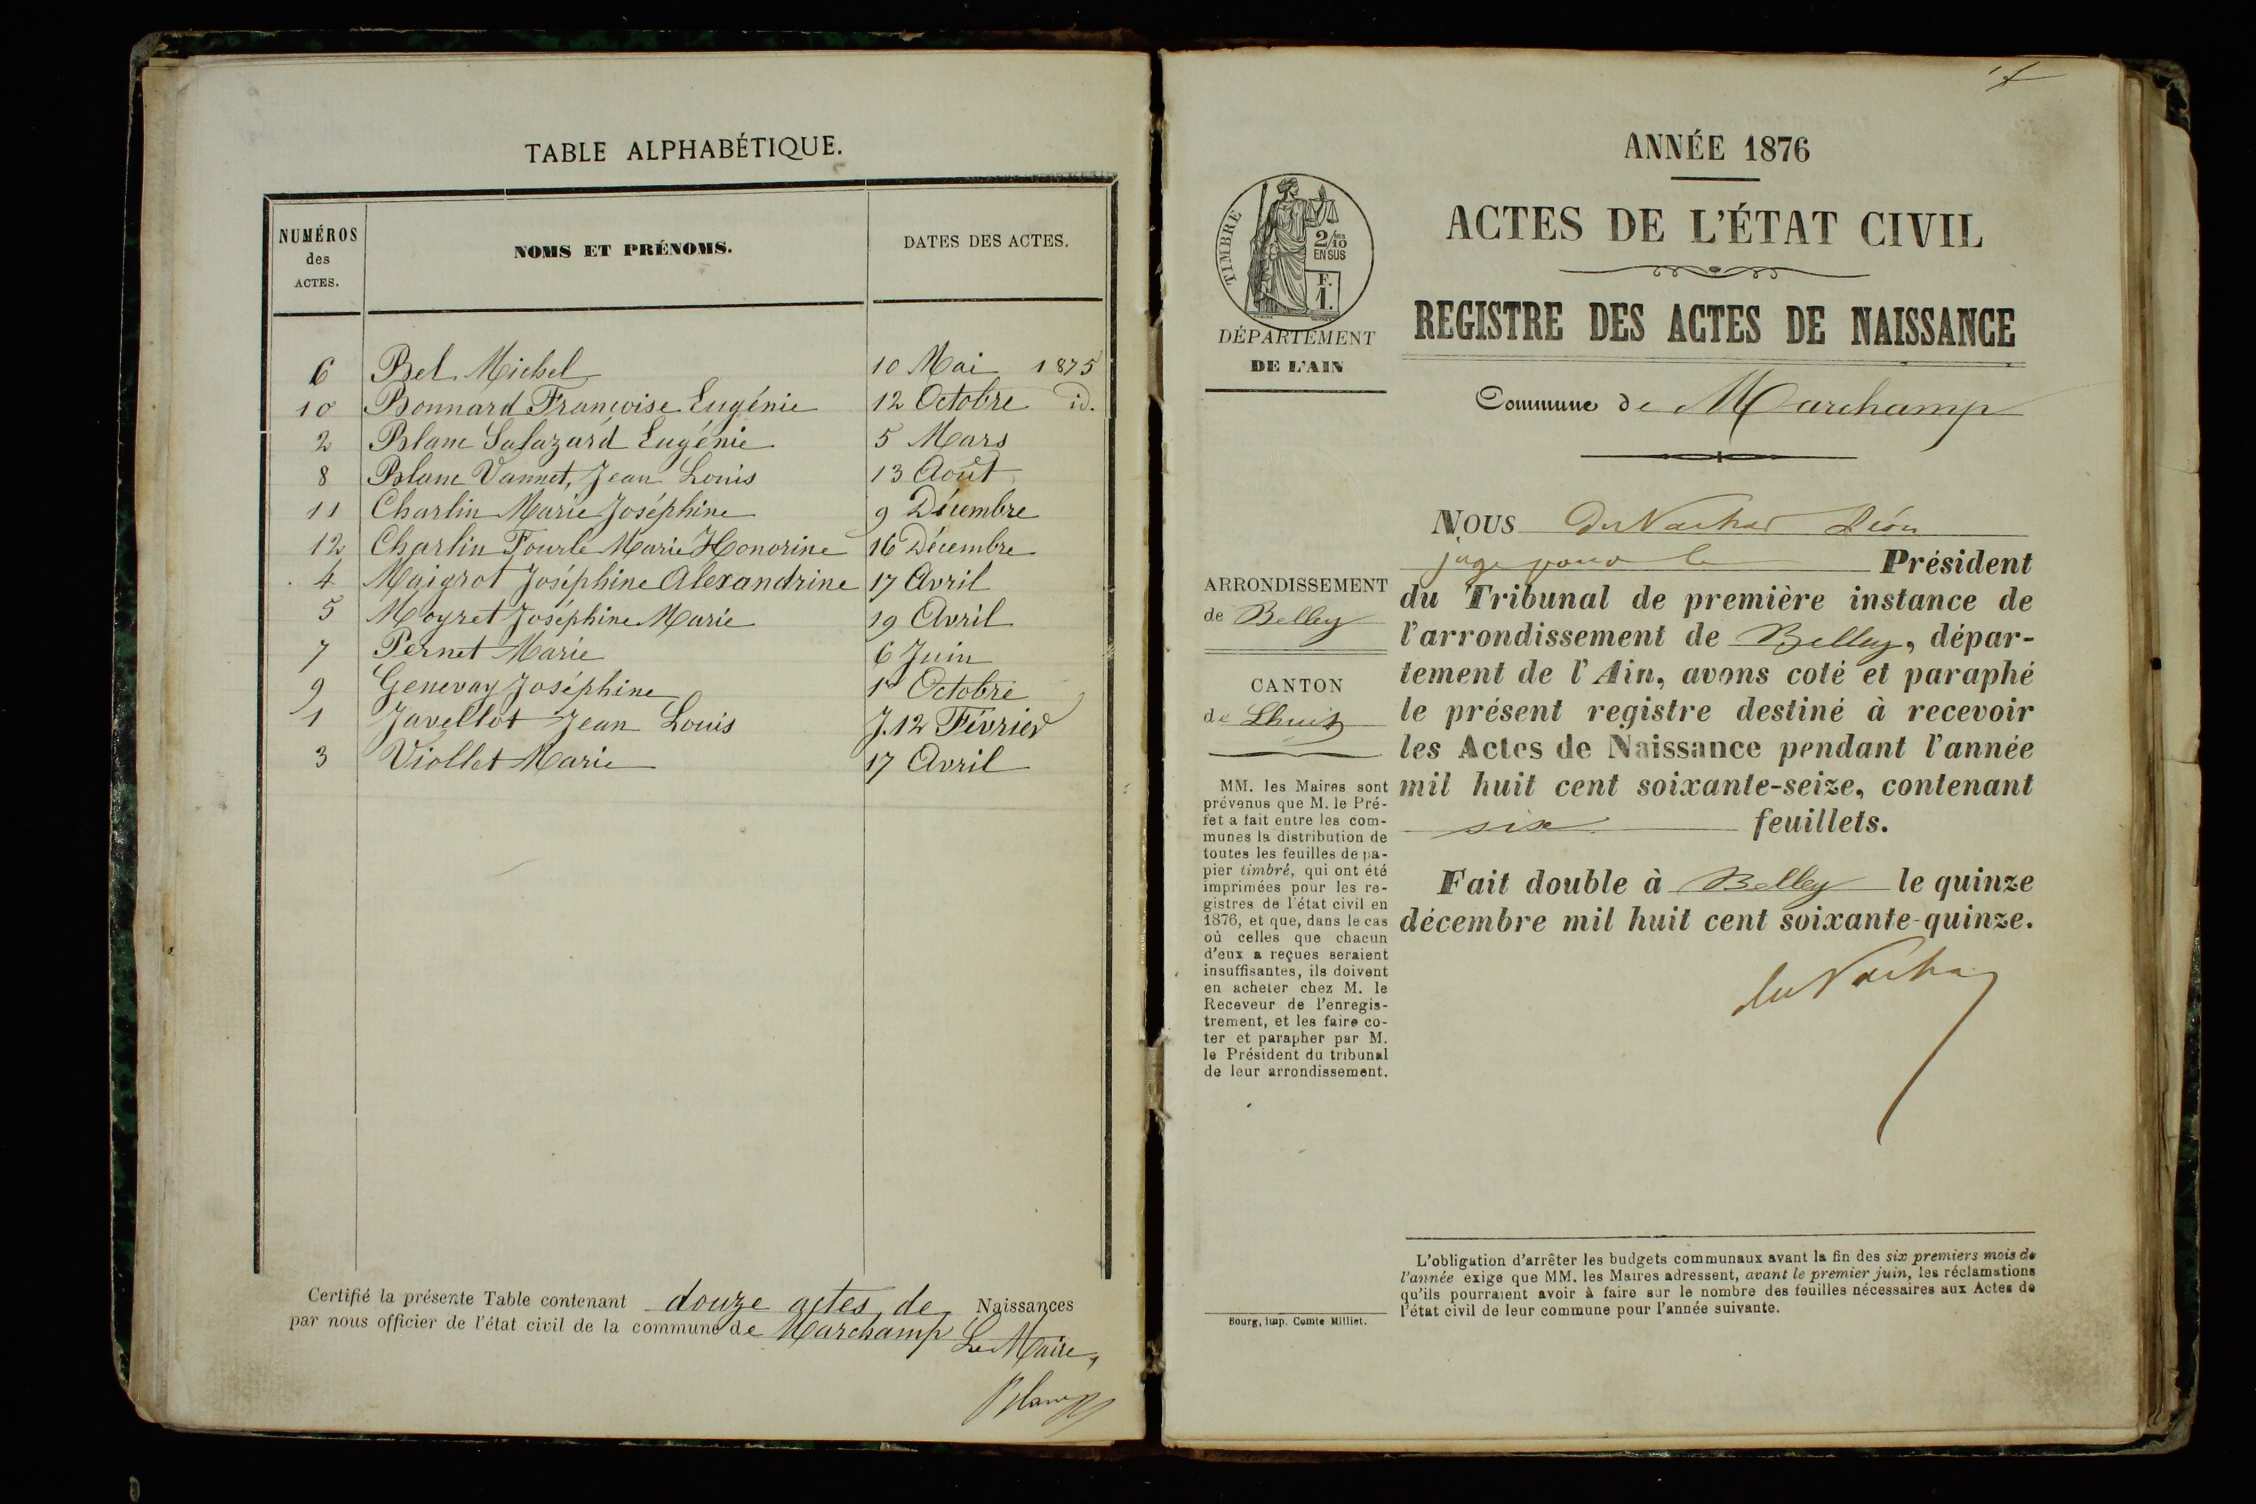 TABLE ALPHABÉTIQUE.
NUMÉROS
des
ACTES.
NOMS ET PRÉNOMS.
DATES DES ACTES.
6 Bel Michel 10 Mai 1875
10 Bonnard Françoise Eugénie 12 Octobre id.
2 Blanc Salazard Eugénie 5 Mars
8 Blanc Vannet, Jean Louis 13 Août
11 Charlin Marie Joséphine 9 Décembre
12 Charlin Fourle Marie Honorine 16 Décembre
4 Maigrot Joséphine Alexandrine 17 Avril
5 Moyret Joséphine Marie 19 Avril
7 Pernet Marie 6 Juin
9 Genevay Joséphine 1er Octobre
1 Javellot Jean Louis J. 12 Février
3 Viollet Marie 17 Avril
Certifié la présente Table contenant douze actes de Naissances
par nous officier de l'état civil de la commune de Marchamp
Le Maire,
Blanc
ANNÉE 1876
ACTES DE L'ÉTAT CIVIL
REGISTRE DES ACTES DE NAISSANCE
Commune de Marchamp
TIMBRE
2/10
EN SUS
F.
1.
DÉPARTEMENT
DE L'AIN
ARRONDISSEMENT
de Belley
CANTON
de Lhuis
MM. les Maires sont
prévenus que M. le Pré-
fet a fait entre les com-
munes la distribution de
toutes les feuilles de pa-
pier timbré, qui ont été
imprimées pour les re-
gistres de l'état civil en
1876, et que, dans le cas
où celles que chacun
d'eux a reçues seraient
insuffisantes, ils doivent
en acheter chez M. le
Receveur de l'enregis-
trement, et les faire co-
ter et parapher par M.
le Président du tribunal
de leur arrondissement.
Bourg, imp. Comte Milliet.
NOUS Léon
juge pour le Président
du Tribunal de première instance de
l'arrondissement de Belley, dépar-
tement de l'Ain, avons coté et paraphé
le présent registre destiné à recevoir
les Actes de Naissance pendant l'année
mil huit cent soixante-seize, contenant
six feuillets.
Fait double à Belley le quinze
décembre mil huit cent soixante-quinze.
L'obligation d'arrêter les budgets communaux avant la fin des six premiers mois de
l'année exige que MM. les Maires adressent, avant le premier juin, les réclamations
qu'ils pourraient avoir à faire sur le nombre des feuilles nécessaires aux Actes de
l'état civil de leur commune pour l'année suivante.